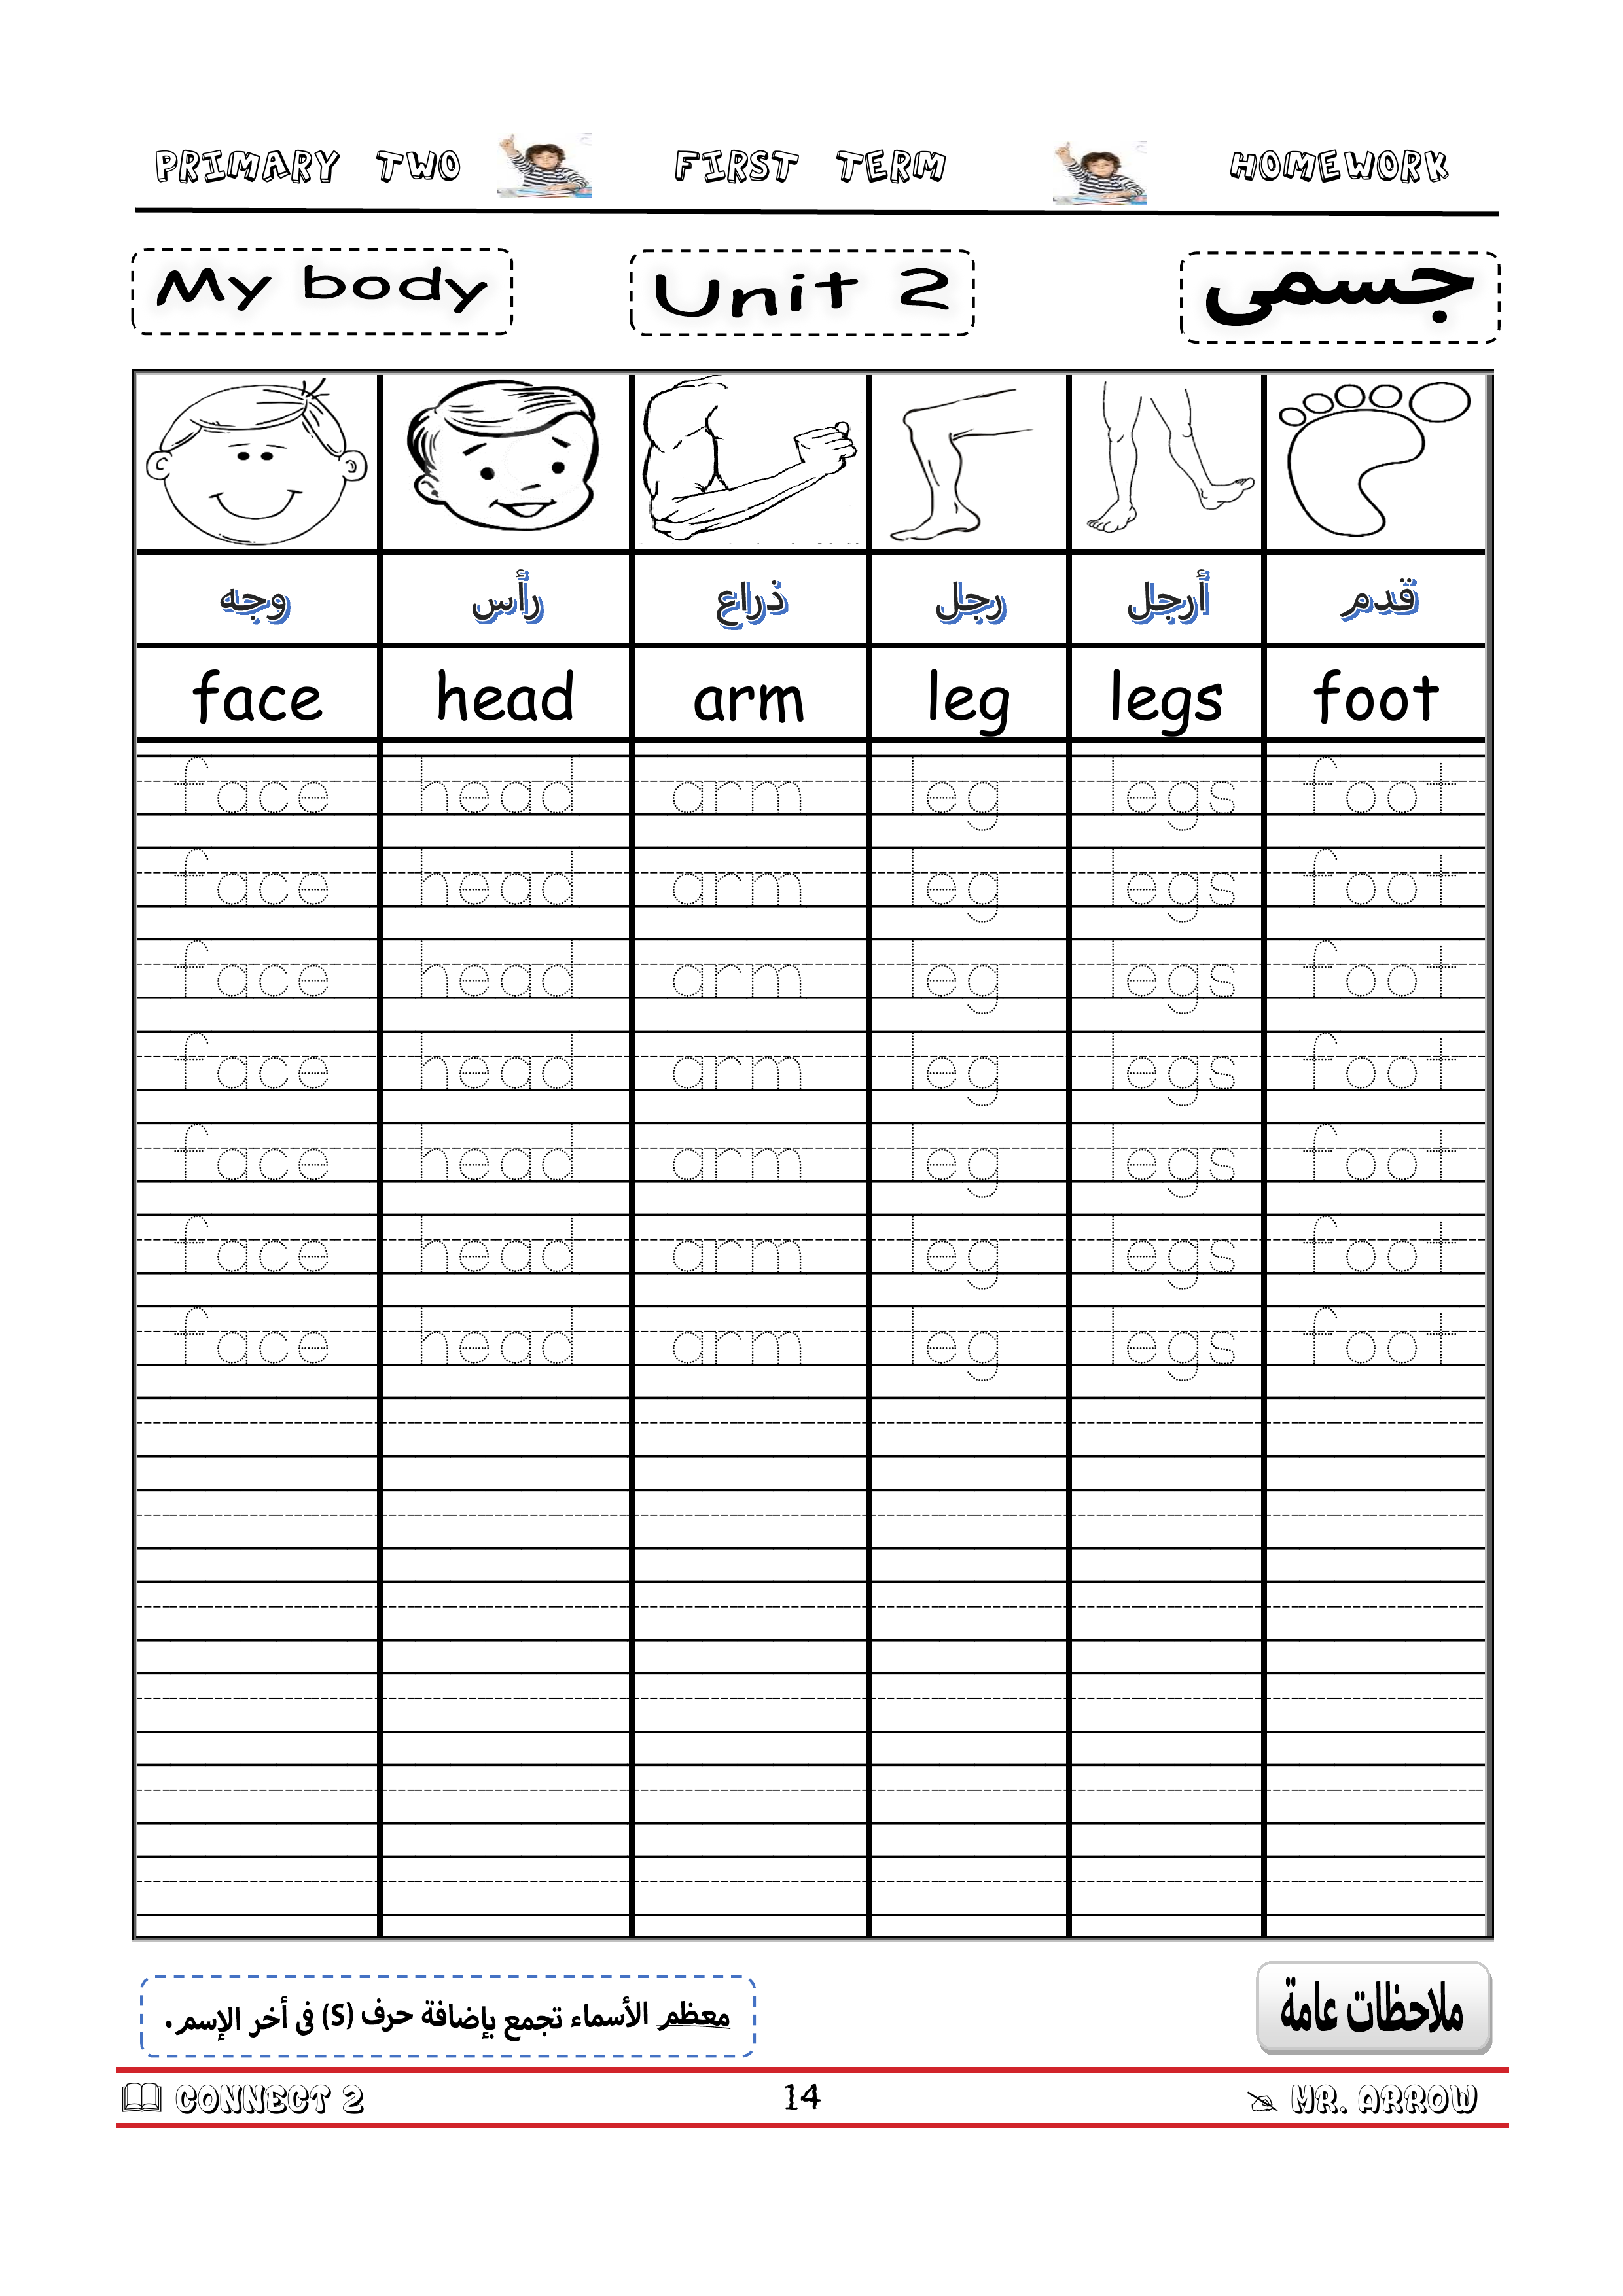 PRIMARY TWO FIRST TERM HOMEWORK
My body Unit 2 جسمى
وجه رأس ذراع رجل أرجل قدم
face head arm leg legs foot
face head arm leg legs foot
face head arm leg legs foot
face head arm leg legs foot
face head arm leg legs foot
face head arm leg legs foot
face head arm leg legs foot
face head arm leg legs foot
ملاحظات عامة
معظم الأسماء تجمع بإضافة حرف (S) فى أخر الإسم.
CONNECT 2 14 MR. ARROW